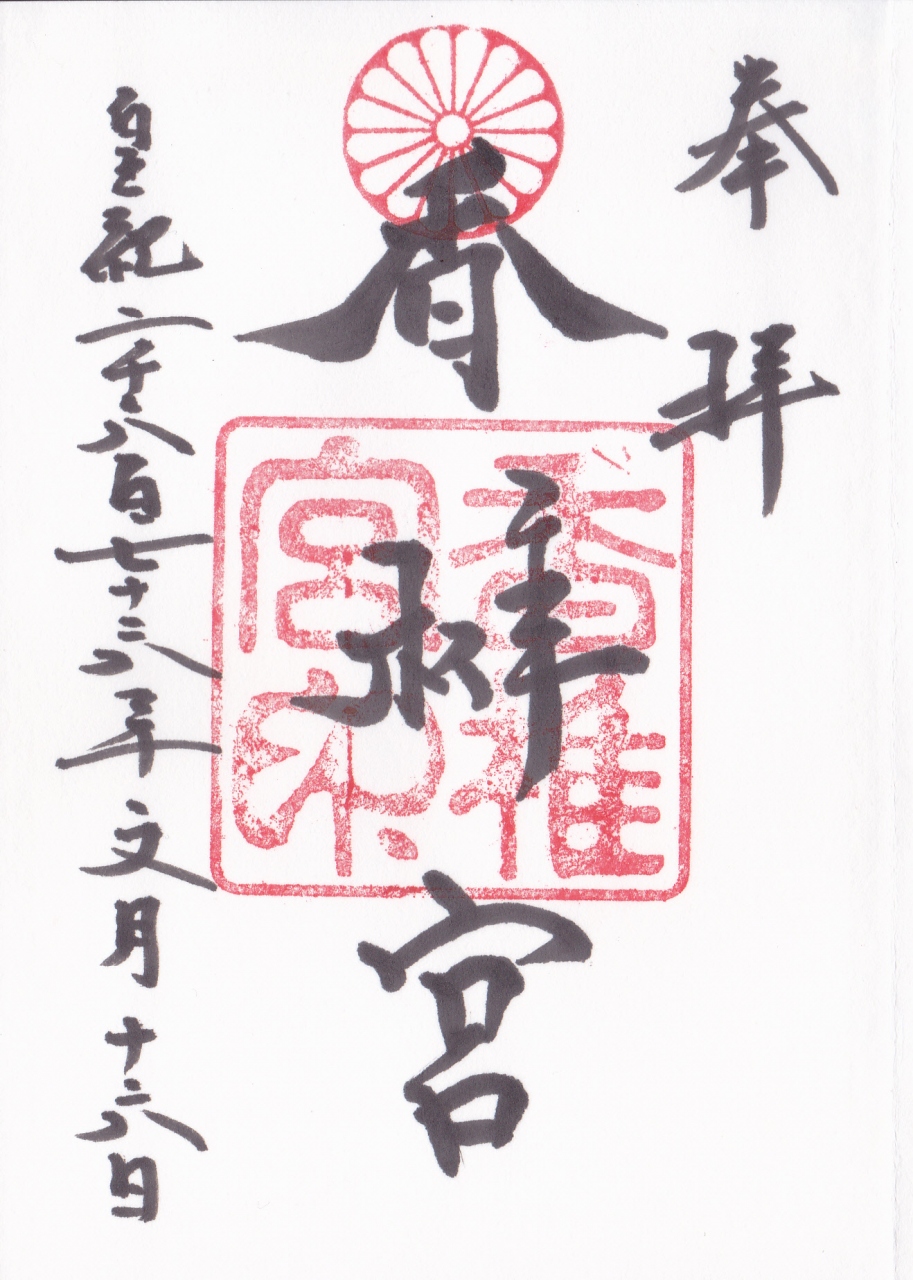 奉拝
香椎宮
香椎宮印
皇紀二千六百七十六年文月十六日